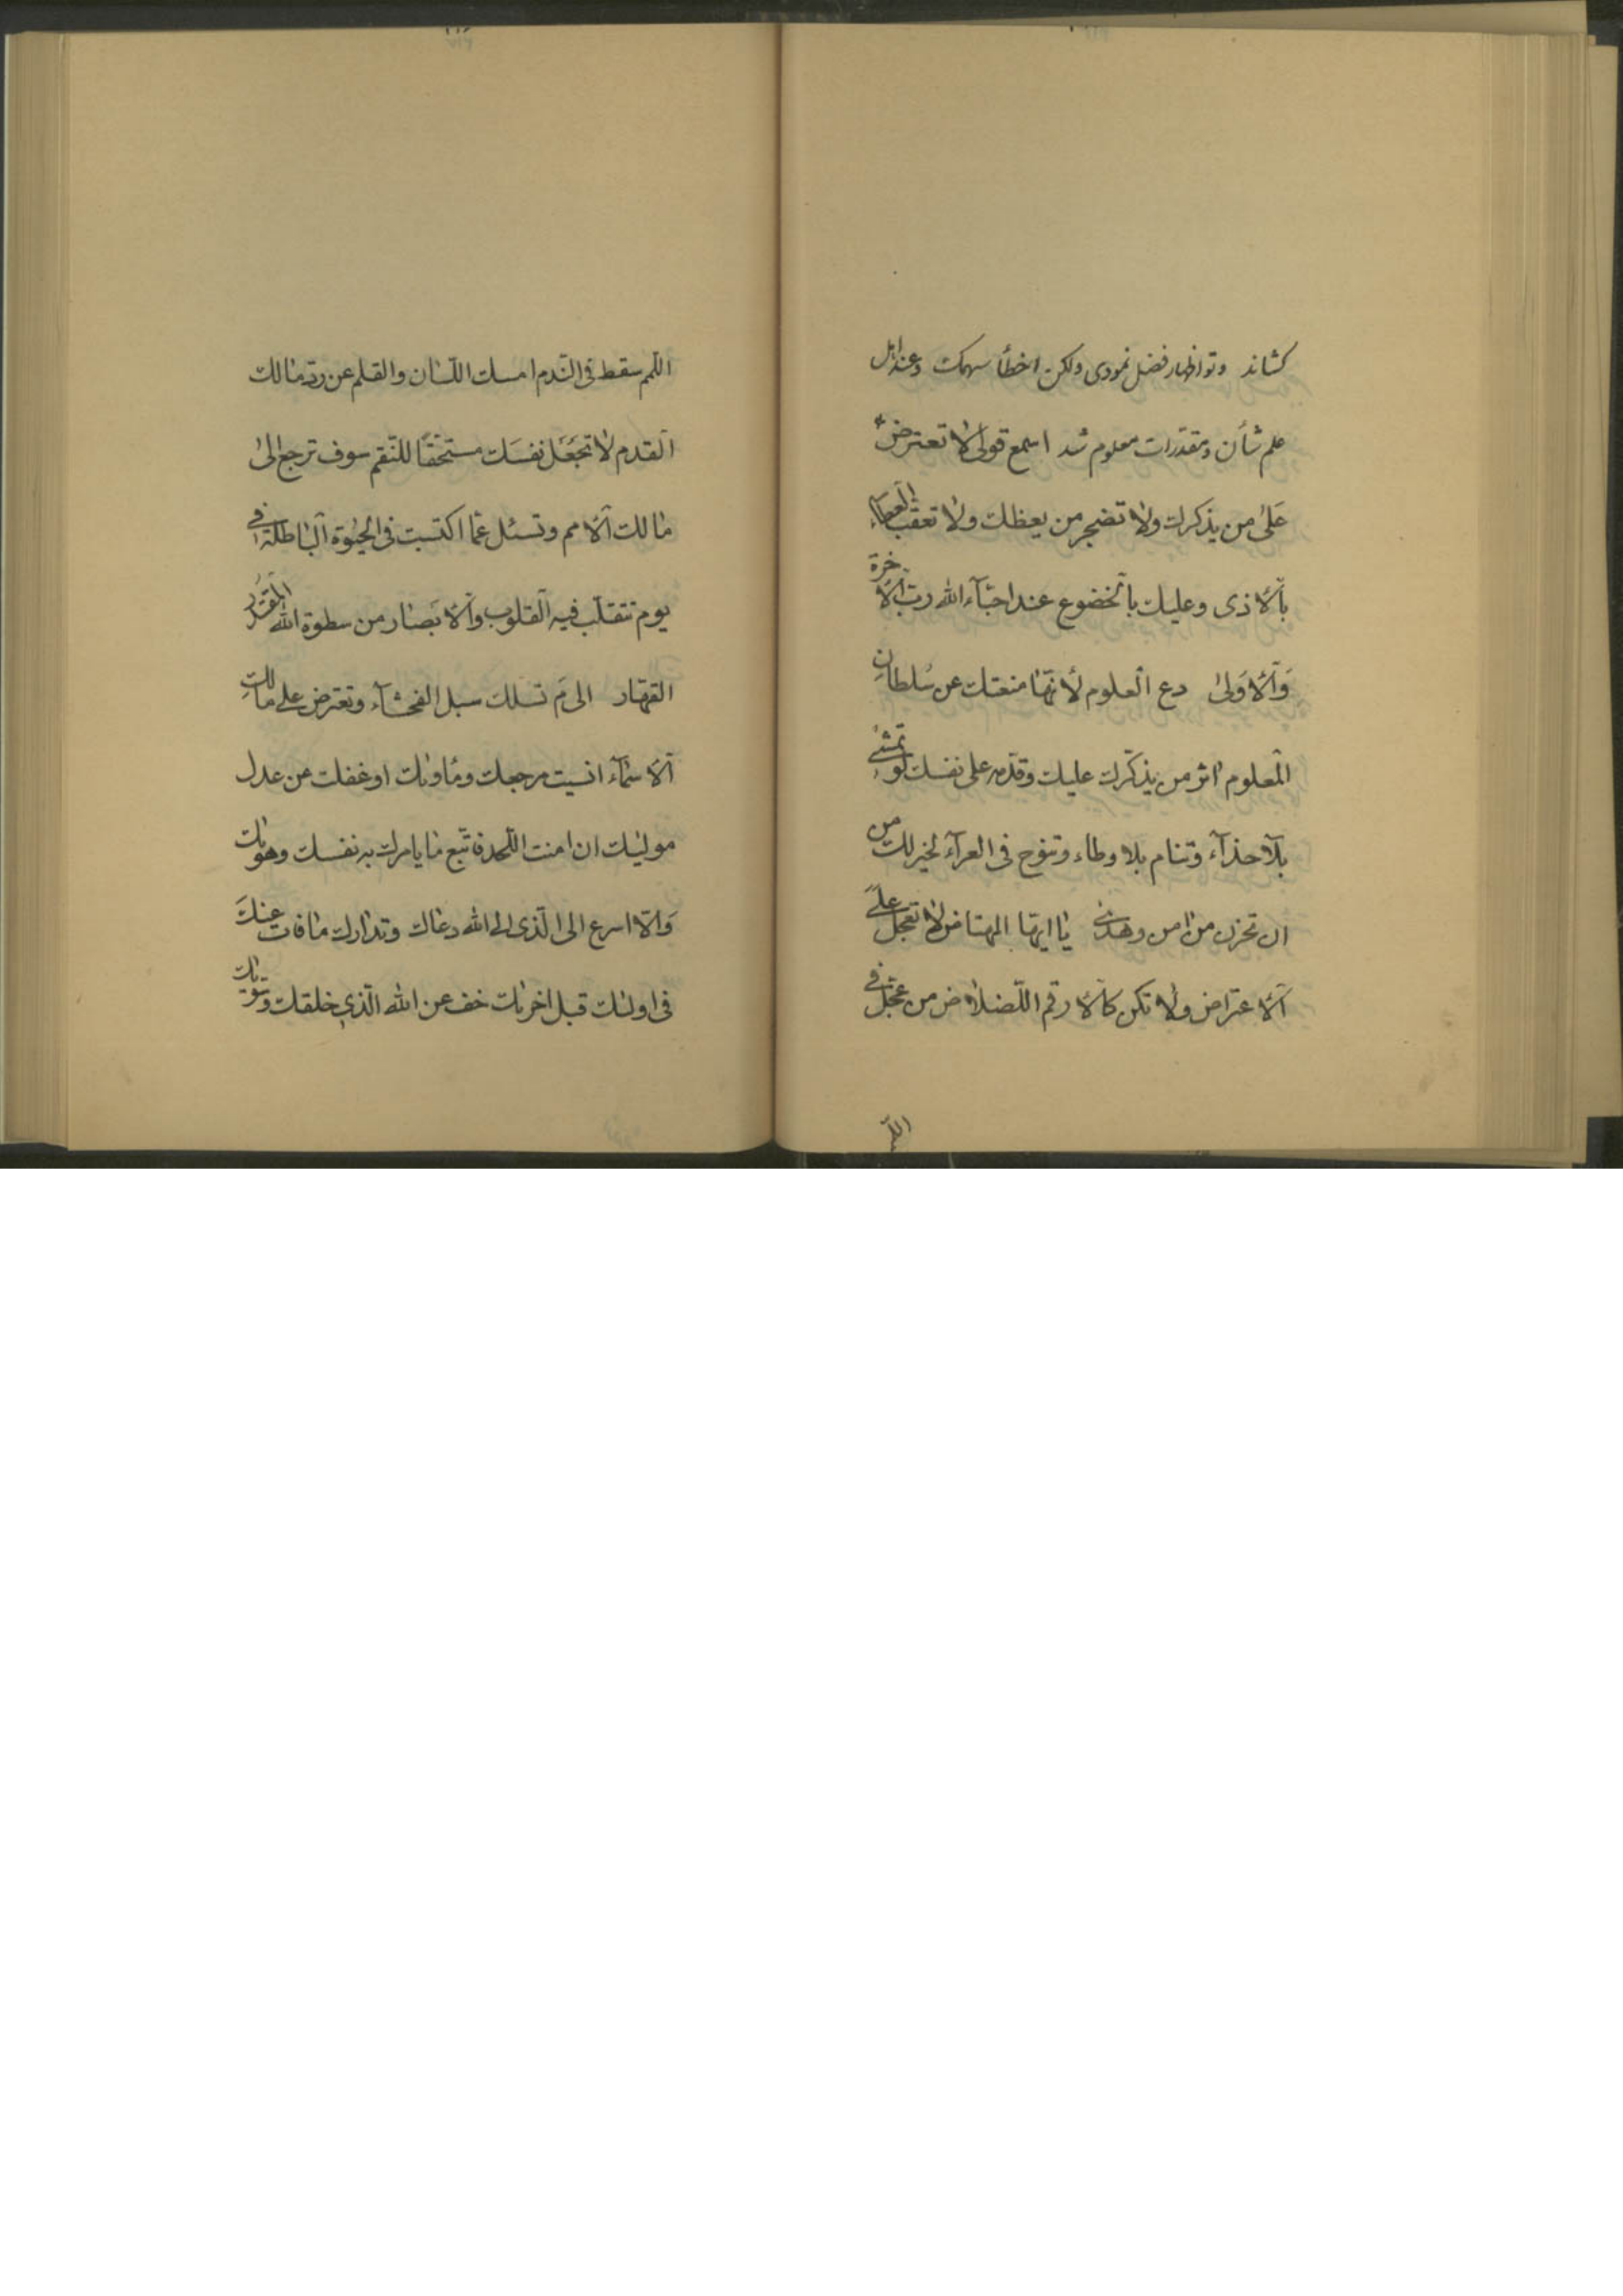 كشاند وتو اظهار فضل نمودى ولكن اخطأ سهمك وعند اهل
علم شأن ومقدّرات معلوم شد اسمع قولى لا تعترض
عَلىٰ من يذكرك ولا تضجر من يعظك ولا تعقب العطاء
بالاذى وعليك بالخضوع عند احبّآء الله ربّ الاخرة
وَالاوَلىٰ دع العلوم لأنّها منعتك عن سُلطانِ
المعلوم اثر من يذكّرك عليك وقدّمه على نفسك لو تمشى
بلا حذآء وتنام بلا وطاء وتنوح فى العرآء لخير لك من
ان تحزن من امن وهدى يا ايها المهتاض لا تعجل علىَ
الاعتراض ولا تكن كالارقم اللّضلاض من عجّل فى
اللّمم
اللّمم سقط فى النّدم امسك اللّسان والقلم عن ردّ مالك
القدم لا تجعَل نفسَك مستحقًّا للنّقم سوف ترجع الىٰ
مالك الامم وتسئل عمّا اكتسبت فى الحيٰوة الباطلة فى
يوم تتقلّب فيه القلوب والابَصار من سطوة الله المقتدر
القهّار الىمَ تسلك سبل الفحشآء وتعترض على مالك
الاسمآء انسيت مرجعك ومأويٰك او غفلت عن عدل
موليٰك ان امنت اللّحد فاتّبع ما يامرك به نفسك وهويٰك
وَالّا اسرع الى الّذى الى الله دعاك وتدارك ما فات عنكَ
فى اوليٰك قبل اخريٰك خف عن الله الّذى خلقك وسَوّيٰك